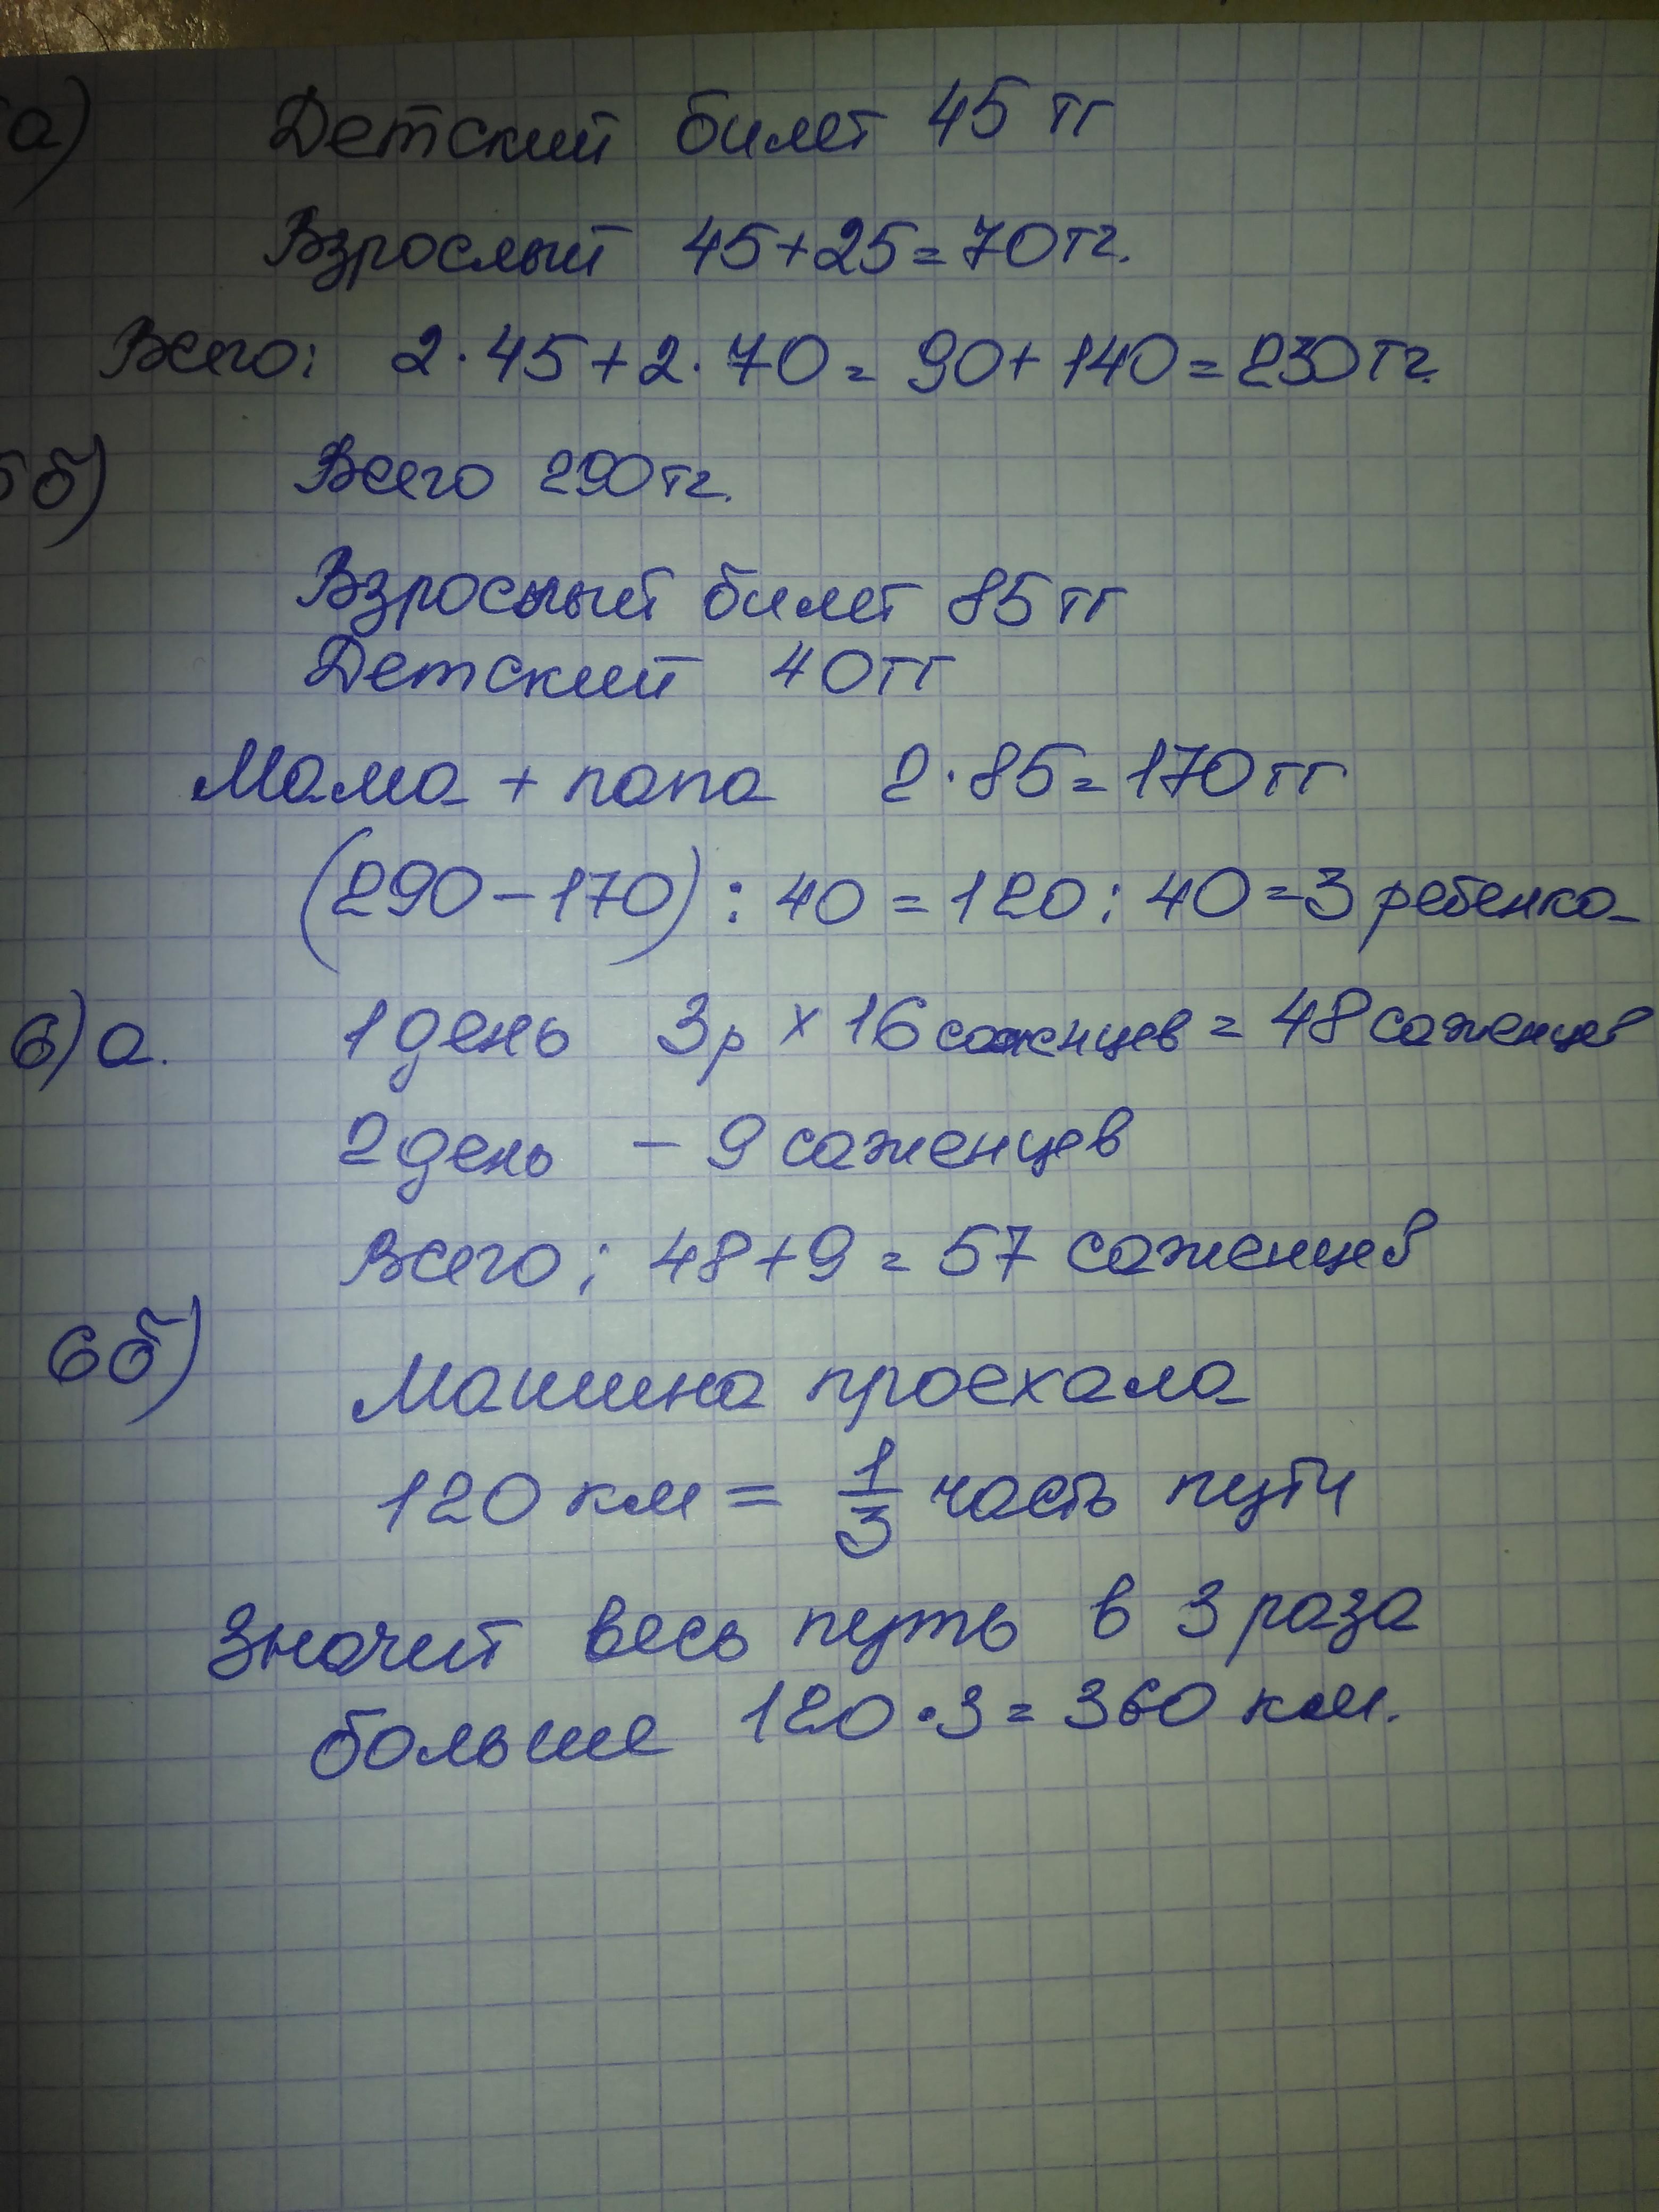 а) Детский билет 45 тг
Взрослый 45+25=70тг.
Всего: 2·45+2·70=90+140=230тг.
5б) Всего 290тг.
Взрослый билет 85тг
Детский 40тг
Мама + папа 2·85=170тг
(290-170):40=120:40=3 ребенка
6)а. 1 день 3р × 16 саженцев = 48 саженцев
2 день - 9 саженцев
Всего: 48+9=57 саженцев
6б) Машина проехала
120 км = 1/3 часть пути
Значит весь путь в 3 раза
больше 120·3=360 км.